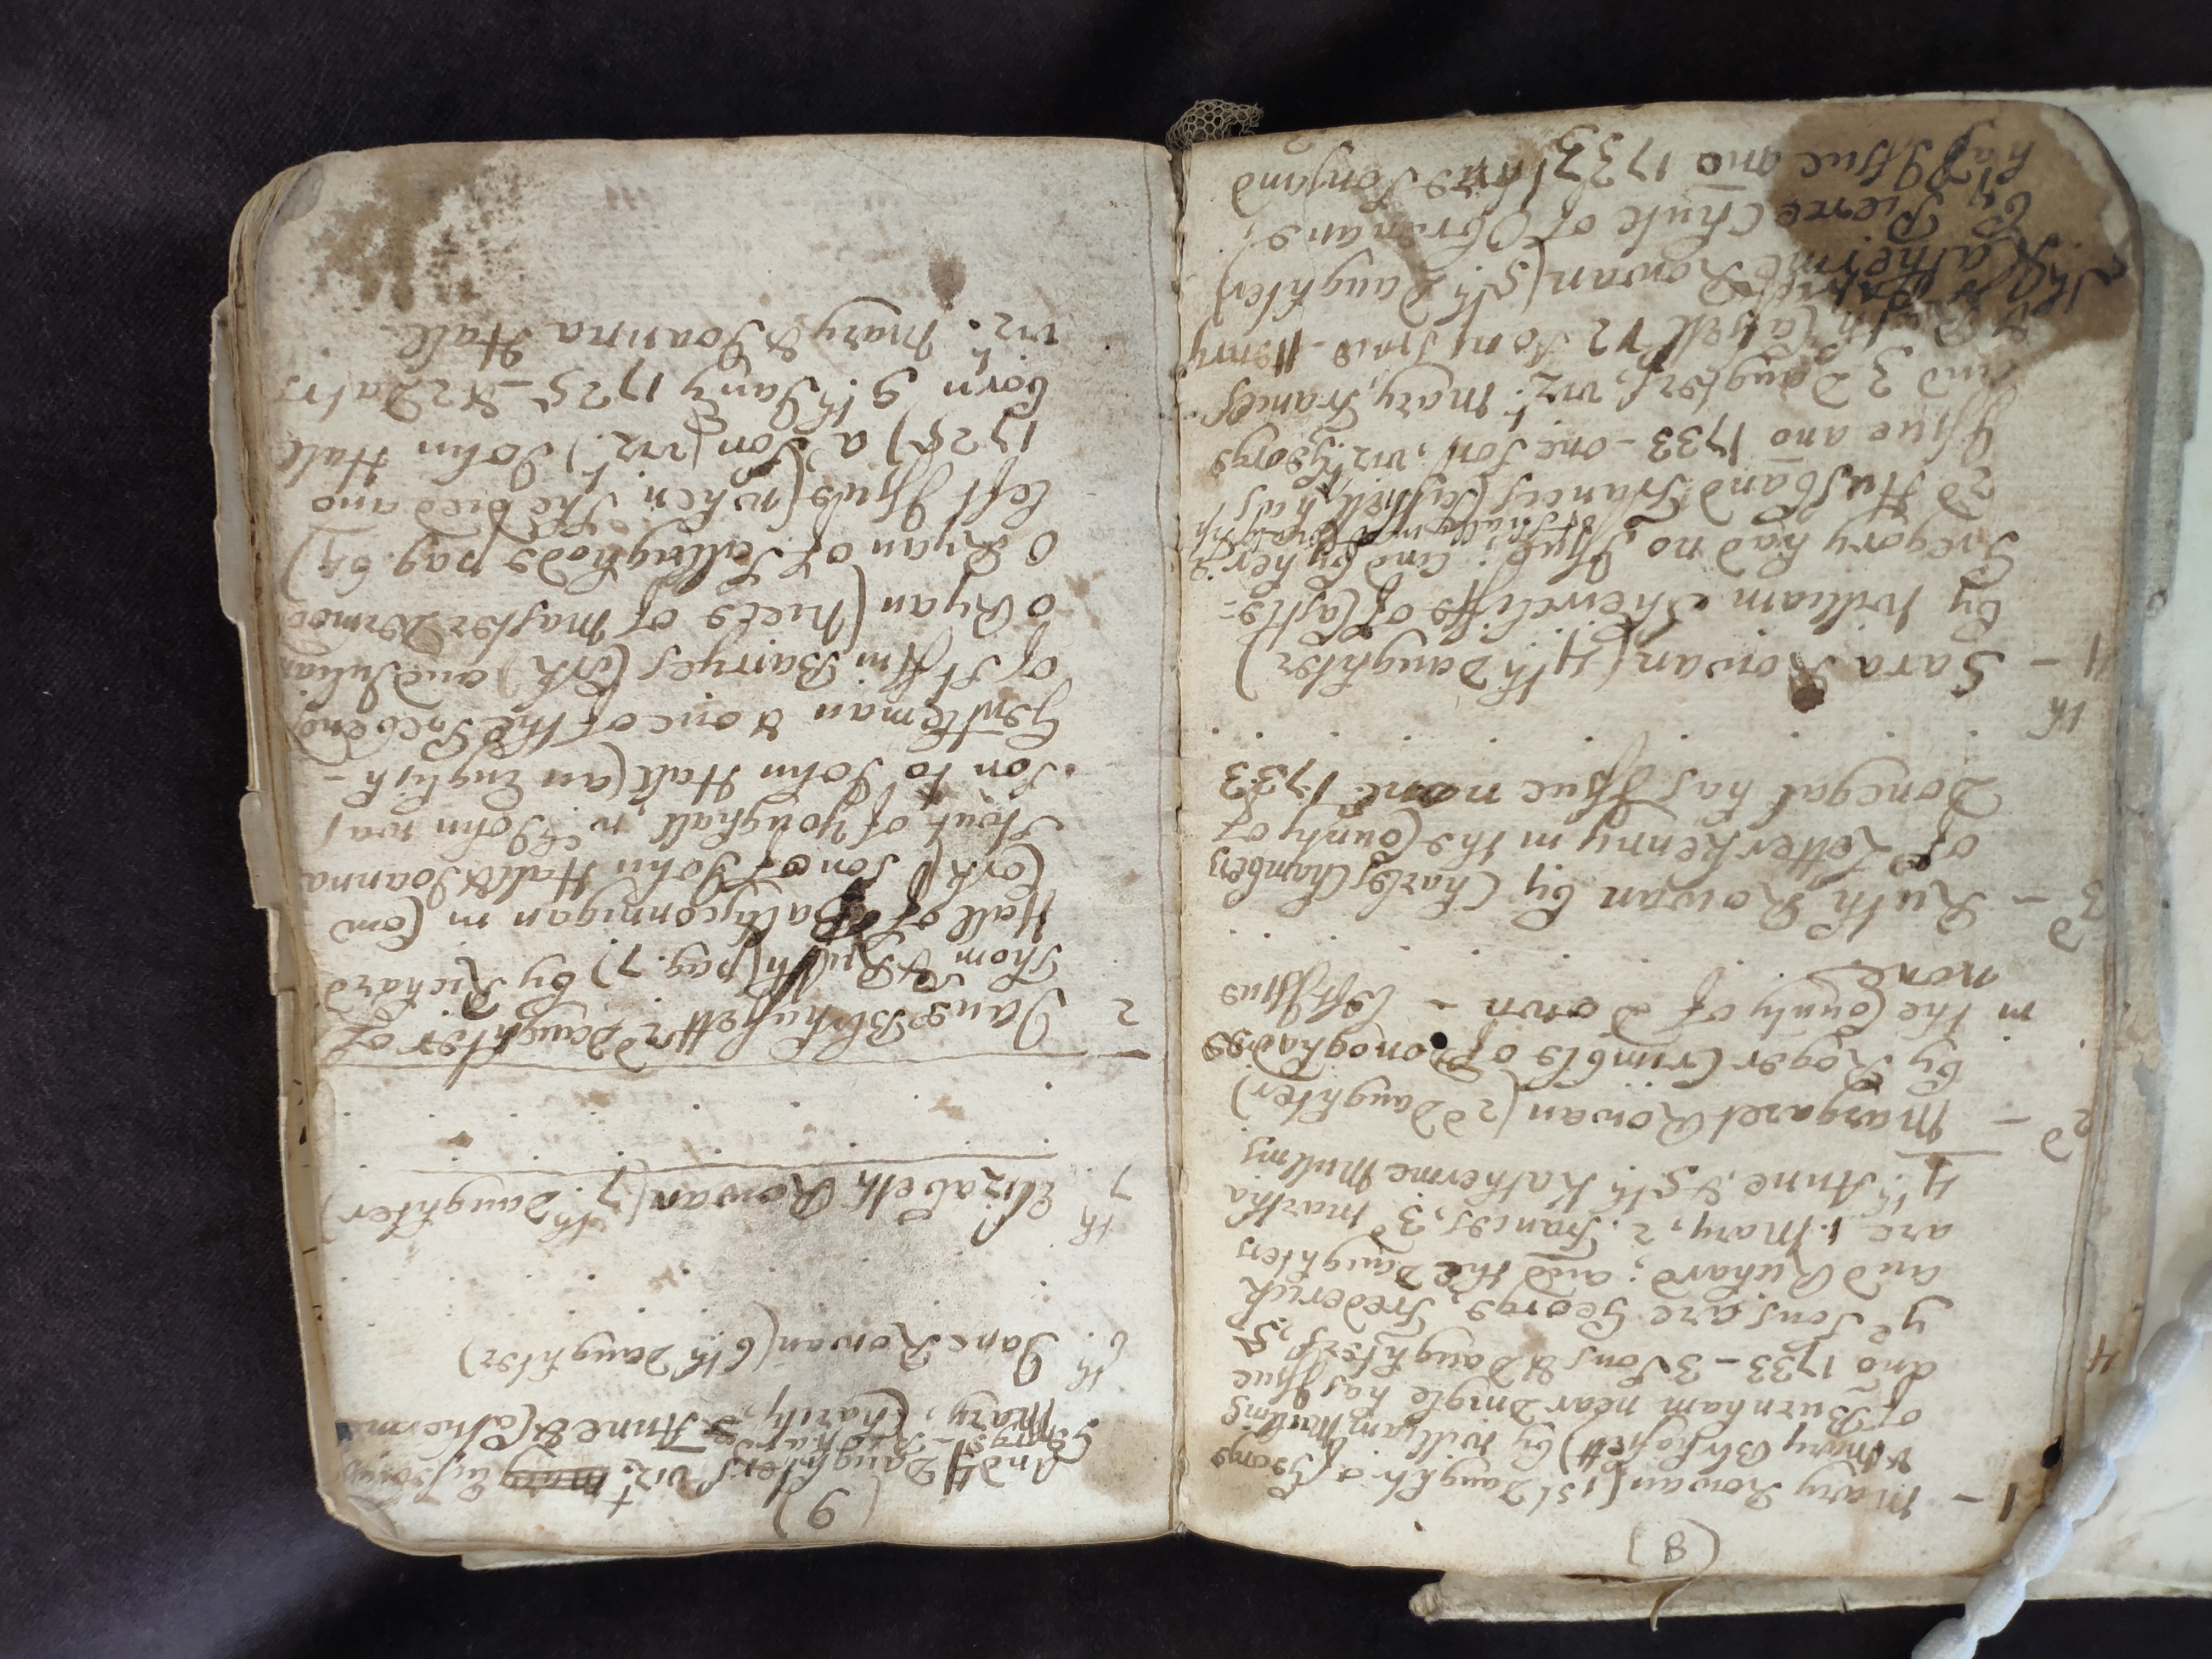 (8)
1 - Mary Rowan (1st Daughtr of George
& Mary Blehasett) by William Mullins
of Burnham near Dingle has Issue
ano 1733 - 3 Sons & Daughters, 5
ye Sons are George, Frederick
and Richard; and the Daughters
are 1. Mary, 2. Frances, 3d Martha
4th Anne, & 5th Katherine Mullins
2d - Margaret Rowan (2d Daughter)
by Roger Crimble of Donoghadee
in the County of Down - left Issue
none
3d - Ruth Rowan by Charles Chambers
of Letterkenny in the County of
Donegal has Issue none 1733
4th - Sara Rowan (4th Daughter)
by William Shewcliffe of Castle-
Gregory had no Issue; and by her
2d Husband Francis Cashell, has
Issue ano 1733 - one Son, vizt George
and 3 Daughters, vizt Mary, Frances
& Ruth Cashell
Katherine Rowan (5th Daughter)
by Pierce Chute of
has Issue ano 1733
(9)
And 4 Daughters vizt
George - Richard - Anne & Catherine
Mary, Charity,
6th Jane Rowan (6th Daughter)
7th Elizabeth Rowan (7th Daughter)
2 - Jane Blehasett 2d Daughter of
Thom & Ruth (pag. 7) by Richard
Hall of Ballyconnigan in Com
Cork) Son of John Hall & Joanna
Stout of Youghall, wch John was
Son to John Hall (an English -
Gentleman & one of the
of St Finn Barryes Cork) and Julian
O Ryan (niece of Master Dermod
O Ryan of pag. 64)
left Issue (when She died ano
1728) a Son (vizt) John Hall
born 9th Jany 1725 - & 2 Datrs
vizt Mary & Joanna Hall